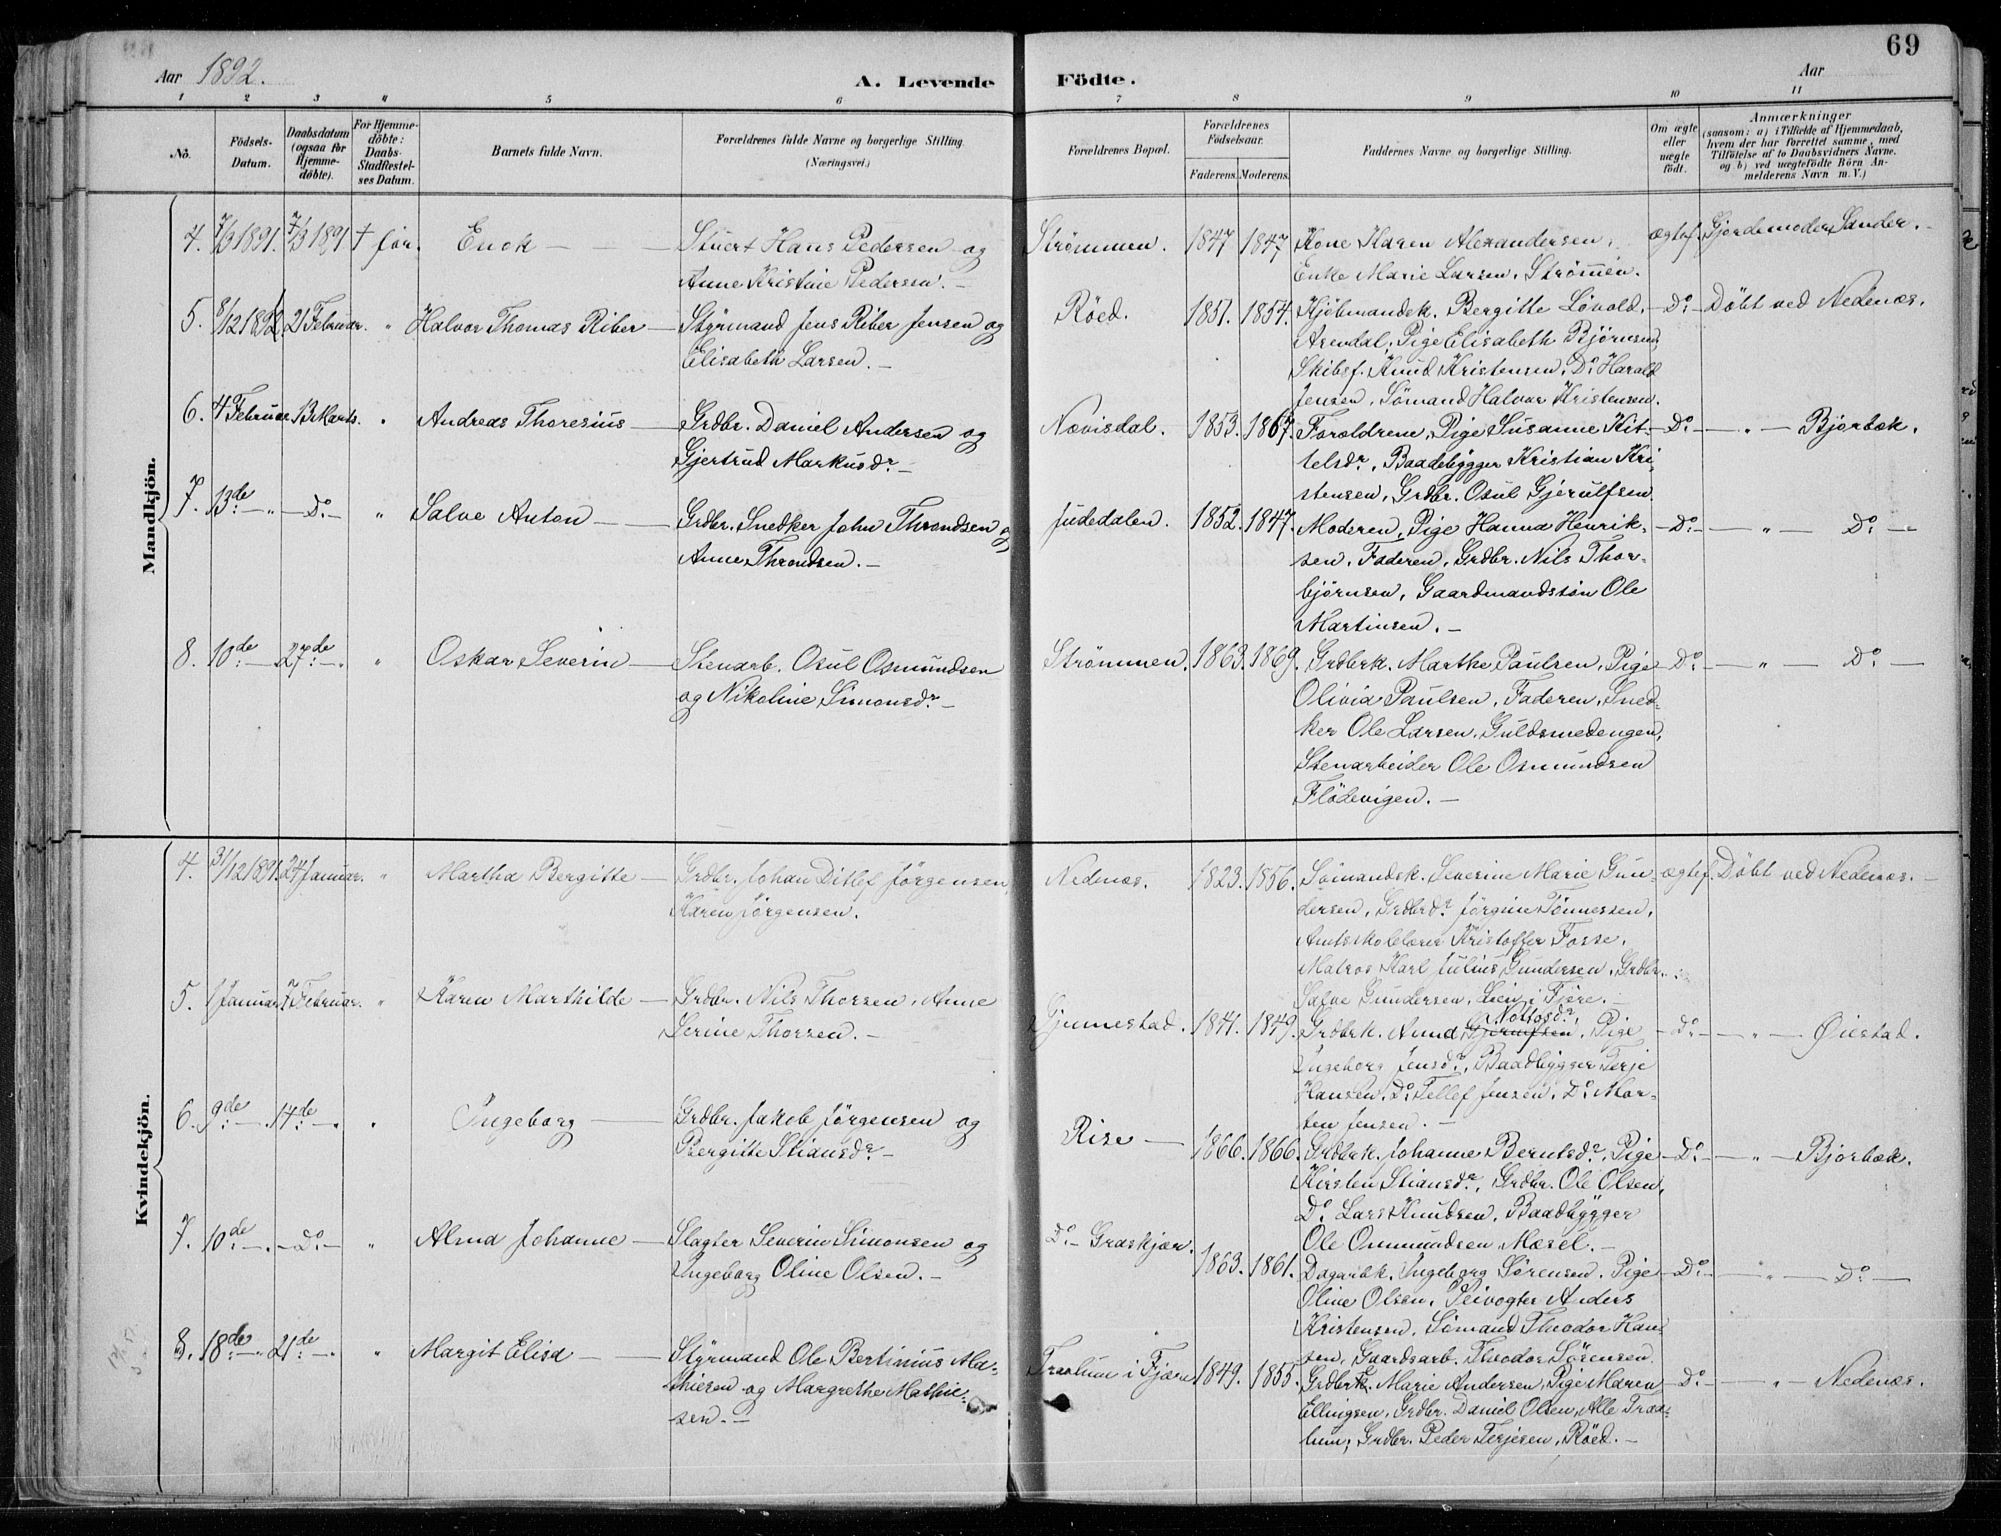 69
Aar 1892.
A. Levende Födte.
Aar
1 2 3 4 5 6 7 8 9 10 11
No.
Födsels-Datum.
Daabsdatum (ogsaa for Hjemmedöbte).
For Hjemmedöbte: Daabs-Stadfestelses Datum.
Barnets fulde Navn.
Forældrenes fulde Navne og borgerlige Stilling. (Næringsvei.)
Forældrenes Bopæl.
Forældrenes Födselsaar.
Faderens. Moderens.
Faddernes Navne og borgerlige Stilling.
Om ægte eller uægte födt.
Anmærkninger
(saasom: a) i Tilfælde af Hjemmedaab,
hvem der har forrettet samme, med
Tilföielse af to Daabsvidners Navne.
og b) ved uægtefödte Börn An-
melderens Navn m. V.)
Mandkjön.
4. 7/3 1891. 7/3 1891 † før. Enok — Stuert Hans Pedersen og
Anne Kristine Pedersen. —
Strømmen. 1847 1847 Kone Karen Alexandersen,
Enke Marie Larsen, Strømmen.
ægtef. Gjordemoder Sander. —
5. 8/12 1892. 21 Februar. " Halvor Thomas Riber — Styrmand Jens Riber Jensen og
Elisabeth Larsen. —
Röed. 1851. 1854. Kjøbmandsk. Bergitte Løvold,
Arendal, Pige Elisabeth Bjørnsen,
Skibsf. Knud Kristensen, Do Harald
Jensen, Sømand Halvor Kristensen.
Do — Döbt ved Nedenæs.
6. 4 Februar 13 Marts. " Andreas Thoresius — Grdbr. Daniel Andersen og
Gjertrud Markusdr —
Nævisdal. 1853. 1867. Forældrene, Pige Susanne Kit-
telsdr, Baadebygger Kristian Kri-
stensen, Grdbr. Osul Gjerulfsen
Do — " — Bjorbæk.
7. 13de — " — Do — " Salve Anton — Grdbr. Snedker John Throndsen og
Anne Throndsen. —
Judedalen. 1852. 1847. Moderen, Pige Hanna Henrik-
sen, Faderen, Grdbr. Nils Thor-
bjørnsen, Gaardmandssøn Ole
Martinsen. —
Do — " — Do —
8. 10de — 27de — " Oskar Severin — Stenarb. Osul Osmundsen
og Nikoline Simonsdr —
Strömmen. 1863. 1869. Grdbrk. Marthe Paulsen, Pige
Olivia Paulsen, Faderen, Sned-
ker Ole Larsen, Guldsmedengen,
Stenarbeider Ole Osmundsen
Flödevigen. —
Do — " — Do —
Kvindekjön.
4. 31/12 1891. 24 Januar. " Martha Bergitte — Grdbr. Johan Ditlef Jørgensen,
Karen Jørgensen.
Nedenæs. 1823. 1856. Sømandsk. Severine Marie Gun-
dersen, Grdbrdr Jørgine Tønnessen,
Amtsskolelærer Kristoffer Fosse,
Matros Karl Julius Gundersen, Grdbr.
Salve Gundersen, Lien i Fjære. —
ægtef. Döbt ved Nedenæs. —
5. 1 Januar. 7 Februar. " Karen Marthilde — Grdbr. Nils Thorsen, Anne
Serine Thorsen. —
Gjennestad. 1841. 1849. Grdbrk. Anne Gjerulfsen Nottosdr, Pige
Ingeborg Jensdr, Baadbygger Terje
Hansen, Do Tellef Jensen, Do Mor-
ten Jensen. —
Do — " — Øiestad.
6. 9de — 14de — " Ingeborg — Grdbr. Jakob Jørgensen og
Bergitte Stiansdr —
Rise — 1866. 1866. Grdbrk. Johanne Berntsdr, Pige
Kirsten Stiansdr, Grdbr. Ole Olsen,
Do Lars Knudsen, Baadbygger
Ole Ommundsen Mæsel. —
Do — " — Bjorbæk.
7. 10de — " — Do — " Alma Johanne — Slagter Severin Simonsen og
Ingeborg Oline Olsen. —
Do — Graskjær. 1863. 1861. Dagarbk. Ingeborg Sørensen, Pige
Oline Olsen, Veivogter Anders
Kristensen, Sømand Theodor Han-
sen, Gaardsarb. Theodor Sørensen.
Do — " — Do —
8. 18de — 21de — " Margit Elisa — Styrmand Ole Bertinius Ma-
thiesen og Margrethe Mathie-
sen. —
Traalum i Fjære 1849. 1855. Grdbrk. Marie Andersen, Pige Maren
Ellingsen, Grdbr. Daniel Olsen, Alle Traa-
lum, Grdbr. Peder Terjesen, Röed. —
Do — " — Nedenæs.